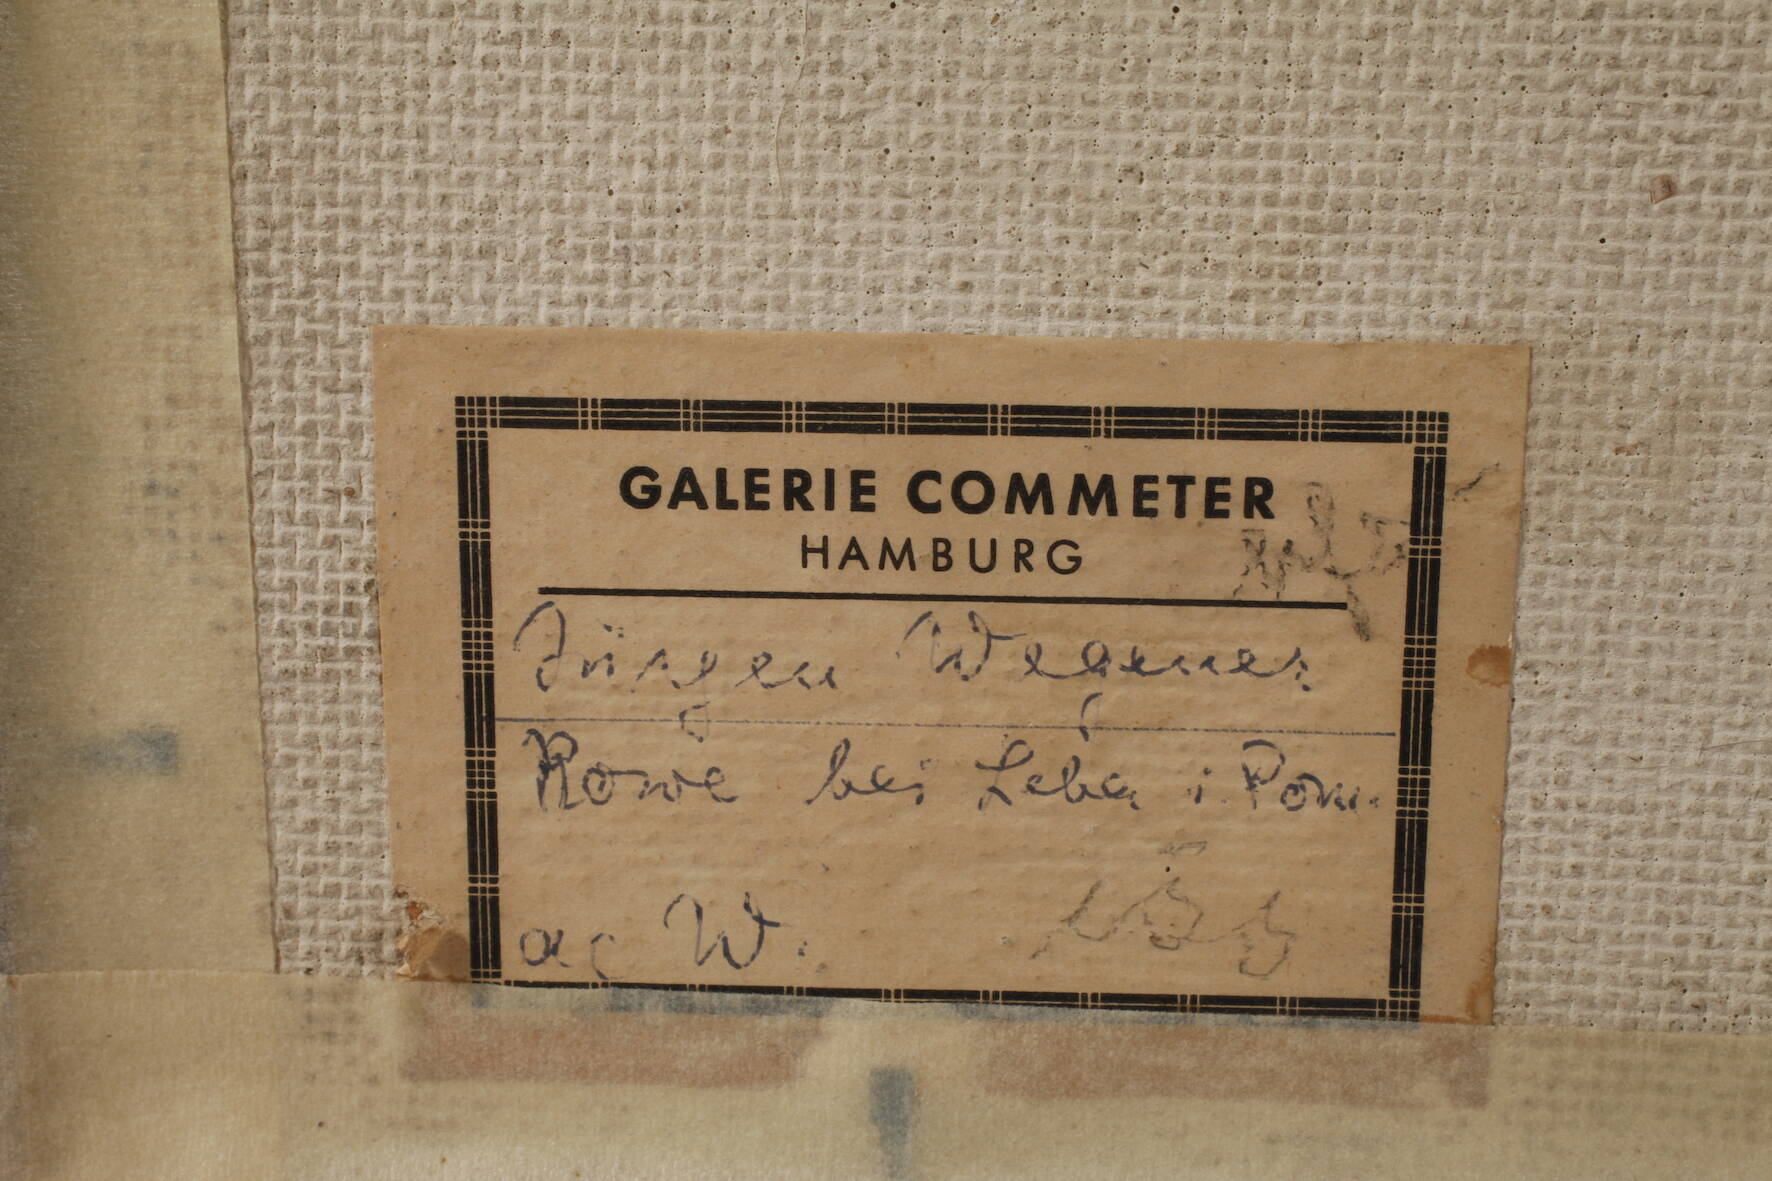 GALERIE COMMETER
HAMBURG
Jürgen Wegener
Rowe bei Leba i. Pom.
W.